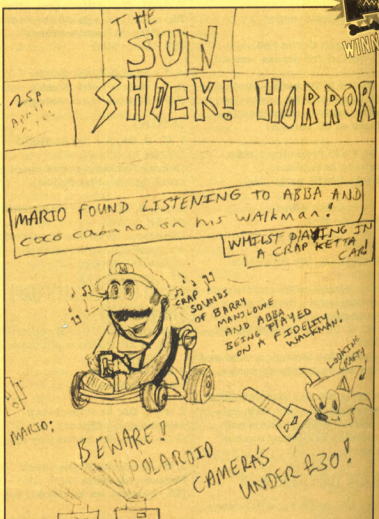 THE
SUN
WINN
25p
APRIL
SHOCK! HORROR
MARIO FOUND LISTENING TO ABBA AND
COCO on his WALKMAN!
WHILST PLAYING IN
A CRAP KETTA
CAR!
CRAP
SOUNDS
OF BARRY
MANILOWE
AND ABBA
BEING PLAYED
ON A FIDELITY
WALKMAN!
LOOKING
CRAFTY
MARIO:
BEWARE!
POLAROID
CAMERA'S
UNDER £30!